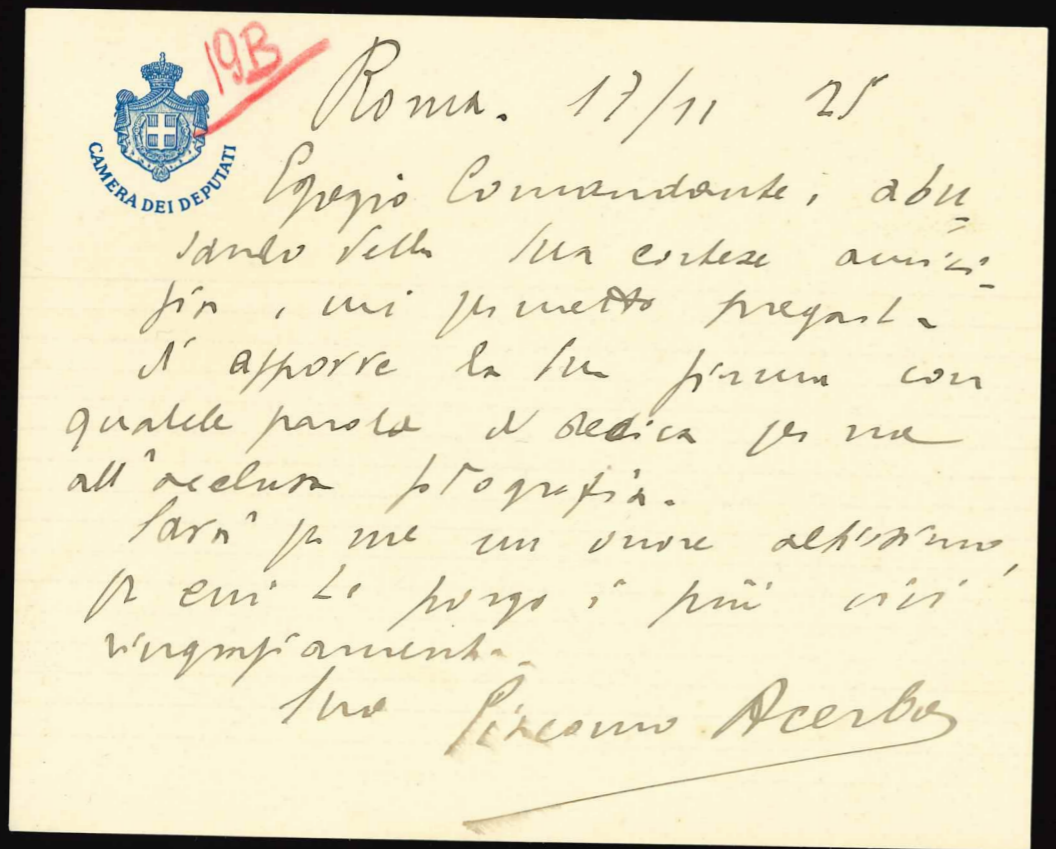 19B
CAMERA DEI DEPUTATI
Roma. 17/11 25
Egregio Comandante, abu=
sando della Sua cortese amici=
zia, mi permetto pregarla
di apporre la Sua firma con
qualche parola di dedica per me
all'acclusa fotografia.
Sarà per me un onore altissimo,
per cui Le porgo i più vivi
ringraziamenti.
Suo Giacomo Acerbo